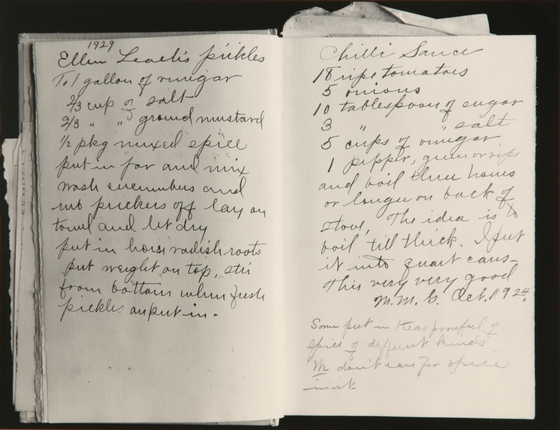 1929
Ellen Leveli's pickles
To 1 gallon of vinegar
2/3 cup of salt
2/3 " " ground mustard
1/2 pkg mixed spice
put in jar and mix
wash cucumbers and
rub prickers off lay on
towel and let dry
put in horse radish roots
put weight on top, stir
from bottom when fresh
pickles are put in.
Chilli Sauce
18 ripe tomatoes
5 onions
10 tablespoon of sugar
3 " " salt
5 cups of vinegar
1 pepper, green or ripe
and boil three hours
or longer on back of
stove, The idea is to
boil till thick. I put
it into quart cans
This very very good
M.M.G. Oct. 1924.
Some put in teaspoonful of
spice of different kinds
don't care for spice